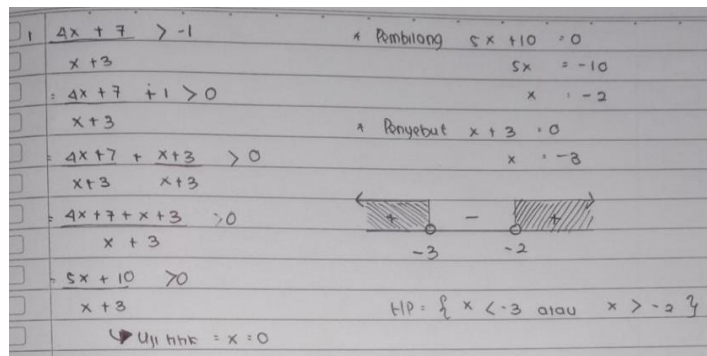 1 4x + 7 > -1
x + 3
= 4x + 7 + 1 > 0
x + 3
= 4x + 7 + x + 3 > 0
x + 3 x + 3
= 4x + 7 + x + 3 > 0
x + 3
= 5x + 10 > 0
x + 3
↳ Uji titik = x = 0
* Pembilang 5x + 10 = 0
5x = -10
x = -2
* Penyebut x + 3 = 0
x = -3
+ - +
-3 -2
HP = { x < -3 atau x > -2 }